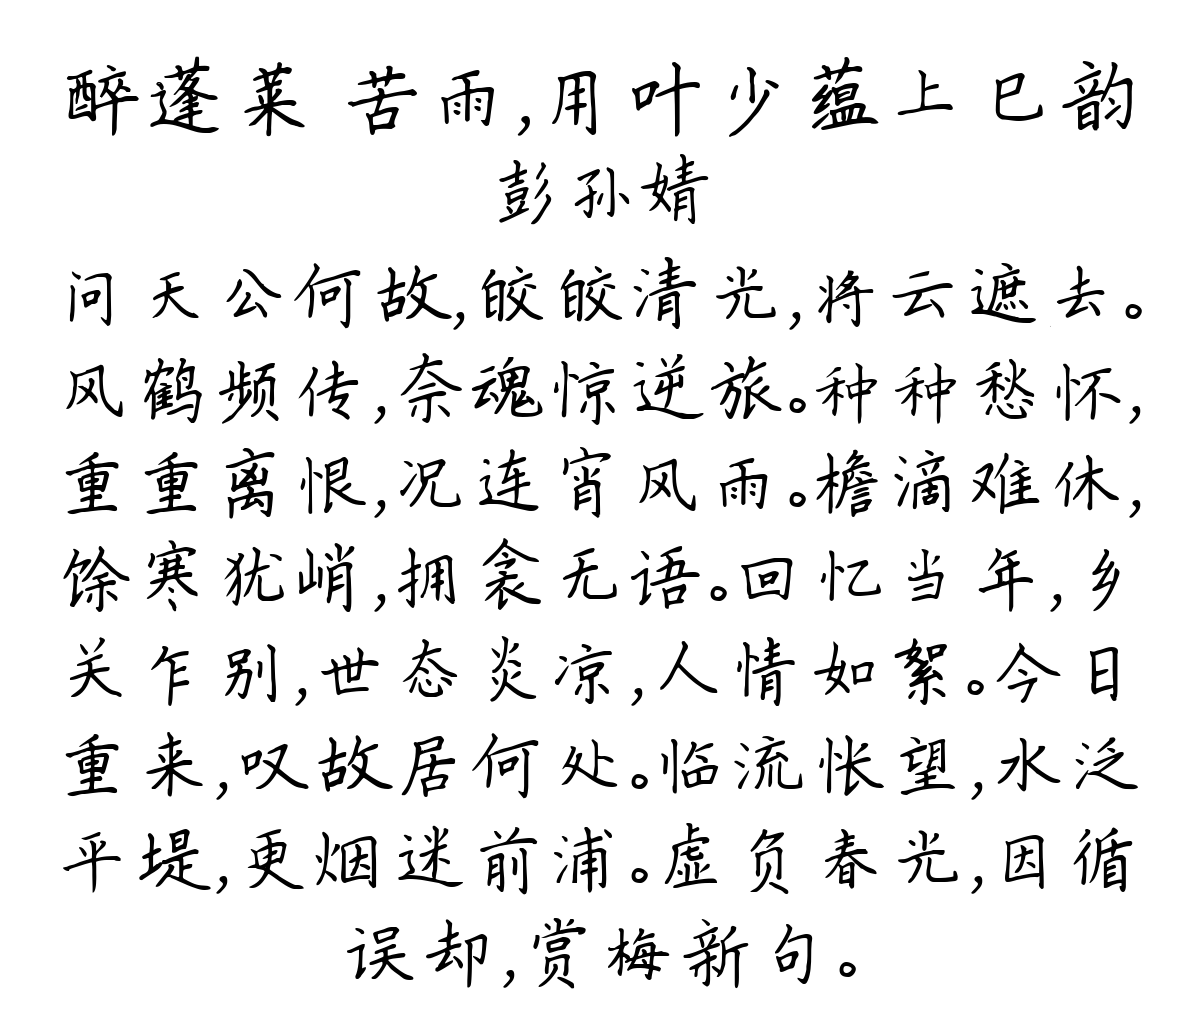 醉蓬莱 苦雨,用叶少蕴上巳韵
彭孙婧
问天公何故,皎皎清光,将云遮去。
风鹤频传,奈魂惊逆旅。种种愁怀,
重重离恨,况连宵风雨。檐滴难休,
馀寒犹峭,拥衾无语。回忆当年,乡
关乍别,世态炎凉,人情如絮。今日
重来,叹故居何处。临流怅望,水泛
平堤,更烟迷前浦。虚负春光,因循
误却,赏梅新句。